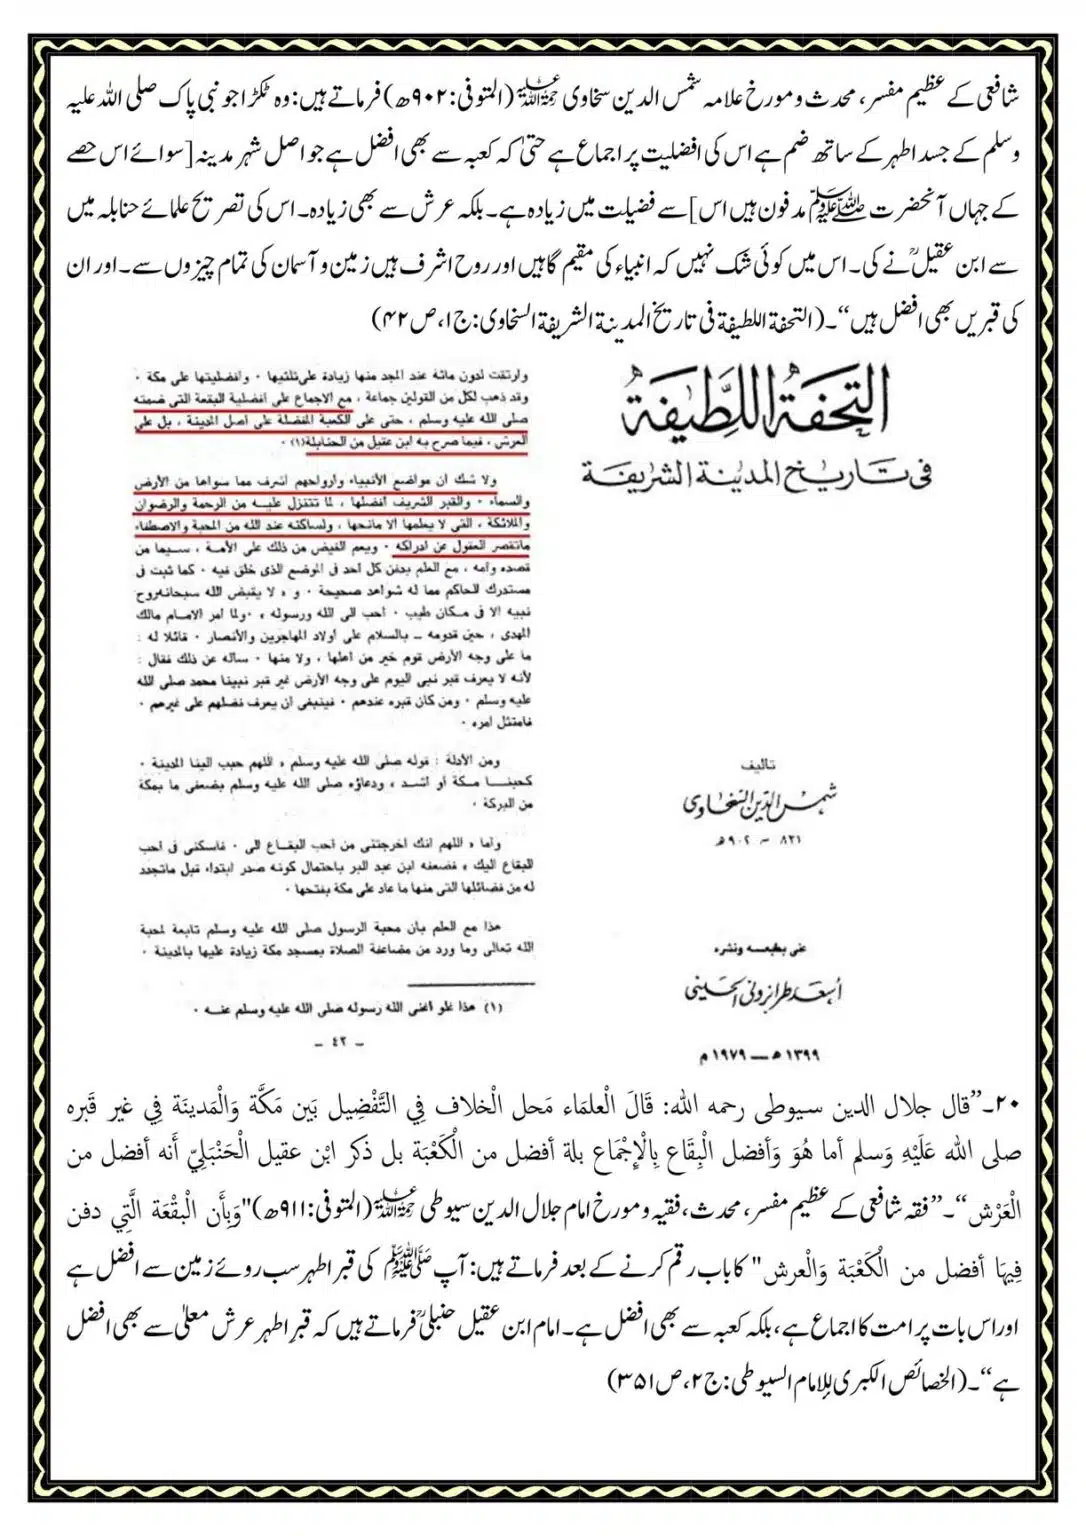 شافعی کے عظیم مفسر، محدث و مورخ علامہ شمس الدین سخاوی رحمۃ اللہ علیہ (المتوفی: ۹۰۲ھ) فرماتے ہیں: وہ ٹکڑا جو نبی پاک صلی اللہ علیہ
وسلم کے جسد اطہر کے ساتھ ضم ہے اس کی افضلیت پر اجماع ہے حتیٰ کہ کعبہ سے بھی افضل ہے جو اصل شہر مدینہ [سوائے اس حصے
کے جہاں آنحضرت ﷺ مدفون ہیں اس] سے فضیلت میں زیادہ ہے۔ بلکہ عرش سے بھی زیادہ۔ اس کی تصریح علمائے حنابلہ میں
سے ابن عقیلؒ نے کی۔ اس میں کوئی شک نہیں کہ انبیاء کی مقیم گاہیں اور روح اشرف ہیں زمین و آسمان کی تمام چیزوں سے۔ اور ان
کی قبریں بھی افضل ہیں“۔ (التحفة اللطيفة فی تاریخ المدينة الشريفة السخاوی: ج۱، ص۴۲)
التحفة اللطيفة
في تاريخ المدينة الشريفة
تأليف
شمس الدين السخاوي
٨٣١ – ٩٠٢ هـ
عنى بطبعه ونشره
أسعد طرابزوني الحسيني
١٣٩٩ هـ — ١٩٧٩ م
وارتقت لدون مائة عند المجد منها زيادة على ثلثيها ٠ وأفضليتها على مكة ٠
وقد ذهب لكل من القولين جماعة ، مع الاجماع على أفضلية البقعة التى ضمته
صلى الله عليه وسلم ، حتى على الكعبة المفضلة على أصل المدينة ، بل على
العرش ، فيما صرح به ابن عقيل من الحنابلة (١) ٠
ولا شك أن مواضع الأنبياء وأرواحهم أشرف مما سواها من الأرض
والسماء ٠ والقبر الشريف أفضلها ، لما تتنزل عليه من الرحمة والرضوان
والملائكة ، التى لا يعلمها الا مانحها ، ولساكنه عند الله من المحبة والاصطفاء
ماتقصر العقول عن ادراكه ٠ ويعم الفيض من ذلك على الأمة ، سيما من
قصده وأمه ، مع العلم بدفن كل أحد فى الموضع الذى خلق فيه ٠ كما ثبت فى
مستدرك الحاكم مما له شواهد صحيحة ٠ و « لا يقبض الله سبحانه روح
نبيه الا فى مكان طيب ٠ أحب الى الله ورسوله » ٠ ولما أمر الامام مالك
المهدى ، حين قدومه – بالسلام على أولاد المهاجرين والأنصار ٠ قائلا له :
ما على وجه الأرض قوم خير من أهلها ، ولا منها ٠ سأله عن ذلك فقال :
لأنه لا يعرف قبر نبى اليوم على وجه الأرض غير قبر نبينا محمد صلى الله
عليه وسلم ٠ ومن كان قبره عندهم ٠ فينبغى أن يعرف فضلهم على غيرهم ٠
فامتثل أمره ٠
ومن الأدلة : قوله صلى الله عليه وسلم « اللهم حبب الينا المدينة ٠
كحبنا مكة أو أشد » ودعاؤه صلى الله عليه وسلم بضعفى ما بمكة
من البركة ٠
وأما « اللهم انك أخرجتنى من أحب البقاع الى ٠ فأسكنى فى أحب
البقاع اليك » فضعفه ابن عبد البر باحتمال كونه صدر ابتداء قبل ماتجدد
له من فضائلها التى منها ما عاد على مكة بفتحها ٠
هذا مع العلم بأن محبة الرسول صلى الله عليه وسلم تابعة لمحبة
الله تعالى وما ورد من مضاعفة الصلاة بمسجد مكة زيادة عليها بالمدينة ٠
(١) هذا غلو أغنى الله رسوله صلى الله عليه وسلم عنه ٠
– ٤٢ –
۲۰۔”قال جلال الدین سیوطی رحمه الله: قَالَ الْعلمَاء مَحل الْخلاف فِي التَّفْضِيل بَين مَكَّة وَالْمَدينَة فِي غير قَبره
صلى الله عَلَيْهِ وَسلم أما هُوَ وَأفضل الْبِقَاع بِالْإِجْمَاع بلة أفضل من الْكَعْبَة بل ذكر ابْن عقيل الْحَنْبَلِيّ أَنه أفضل من
الْعَرْش“۔”فقہ شافعی کے عظیم مفسر، محدث، فقیہ و مورخ امام جلال الدین سیوطی رحمۃ اللہ علیہ (المتوفی: ۹۱۱ھ)"وَبِأَن الْبقْعَة الَّتِي دفن
فِيهَا أفضل من الْكَعْبَة وَالْعرش" کا باب رقم کرنے کے بعد فرماتے ہیں: آپ ﷺ کی قبر اطہر سب روئے زمین سے افضل ہے
اور اس بات پر امت کا اجماع ہے، بلکہ کعبہ سے بھی افضل ہے۔ امام ابن عقیل حنبلیؒ فرماتے ہیں کہ قبرِ اطہر عرش معلیٰ سے بھی افضل
ہے“۔ (الخصائص الکبری للإمام السیوطی: ج۲، ص۳۵۱)